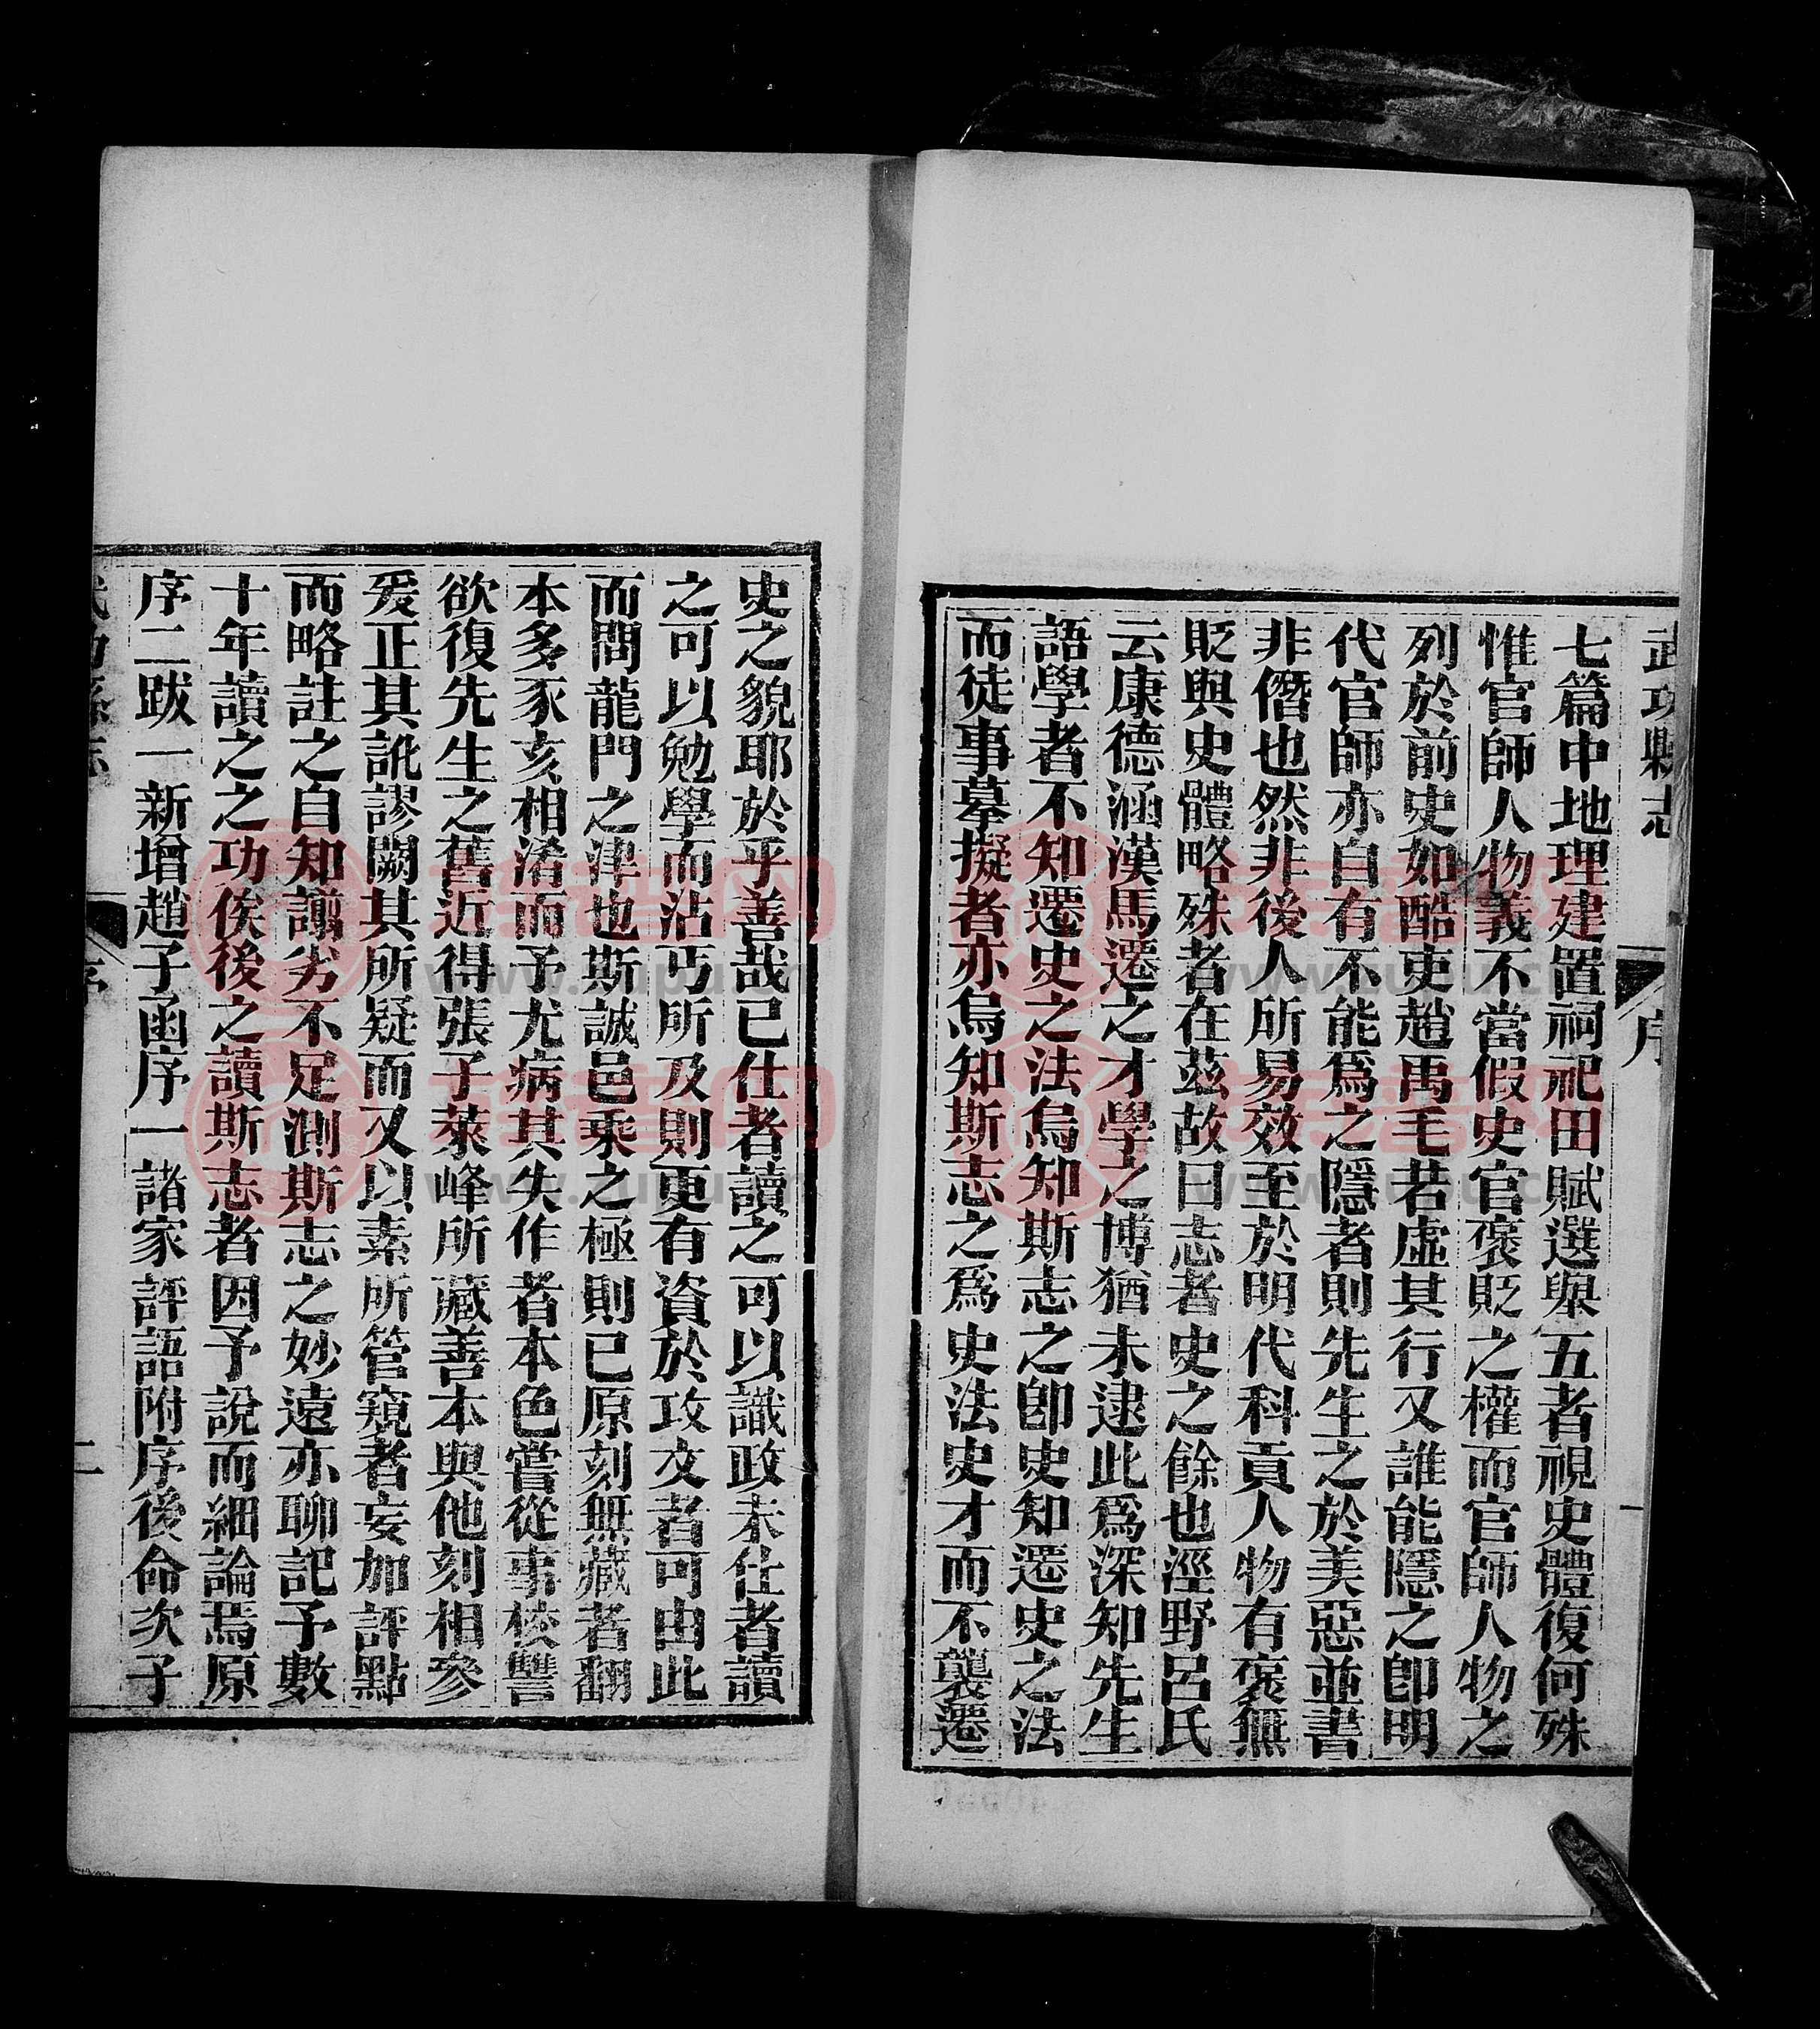 武功縣志
序
一
七篇中地理建置祠祀田賦選舉五者視史體復何殊
惟官師人物義不當假史官褒貶之權而官師人物之
列於前史如酷吏趙禹毛若虛其行又誰能隱之卽明
代官師亦自有不能爲之隱者則先生之於美惡並書
非僭也然非後人所易效至於明代科貢人物有褒無
貶與史體略殊者在茲故曰志者史之餘也涇野呂氏
云康德涵漢馬遷之才學之博猶未逮此爲深知先生
語學者不知遷史之法烏知斯志之卽史知遷史之法
而徒事摹擬者亦烏知斯志之爲史法史才而不襲遷
史之貌耶於乎善哉已仕者讀之可以識政未仕者讀
之可以勉學而沾丐所及則更有資於攻文者可由此
而問龍門之津也斯誠邑乘之極則已原刻無藏者翻
本多豕亥相淆而予尤病其失作者本色嘗從事校讐
欲復先生之舊近得張子萊峰所藏善本與他刻相參
爰正其訛謬闕其所疑而又以素所管窺者妄加評點
而略註之自知譾劣不足測斯志之妙遠亦聊記予數
十年讀之之功俟後之讀斯志者因予說而細論焉原
序二跋一新增趙子函序一諸家評語附序後命次子
序
二